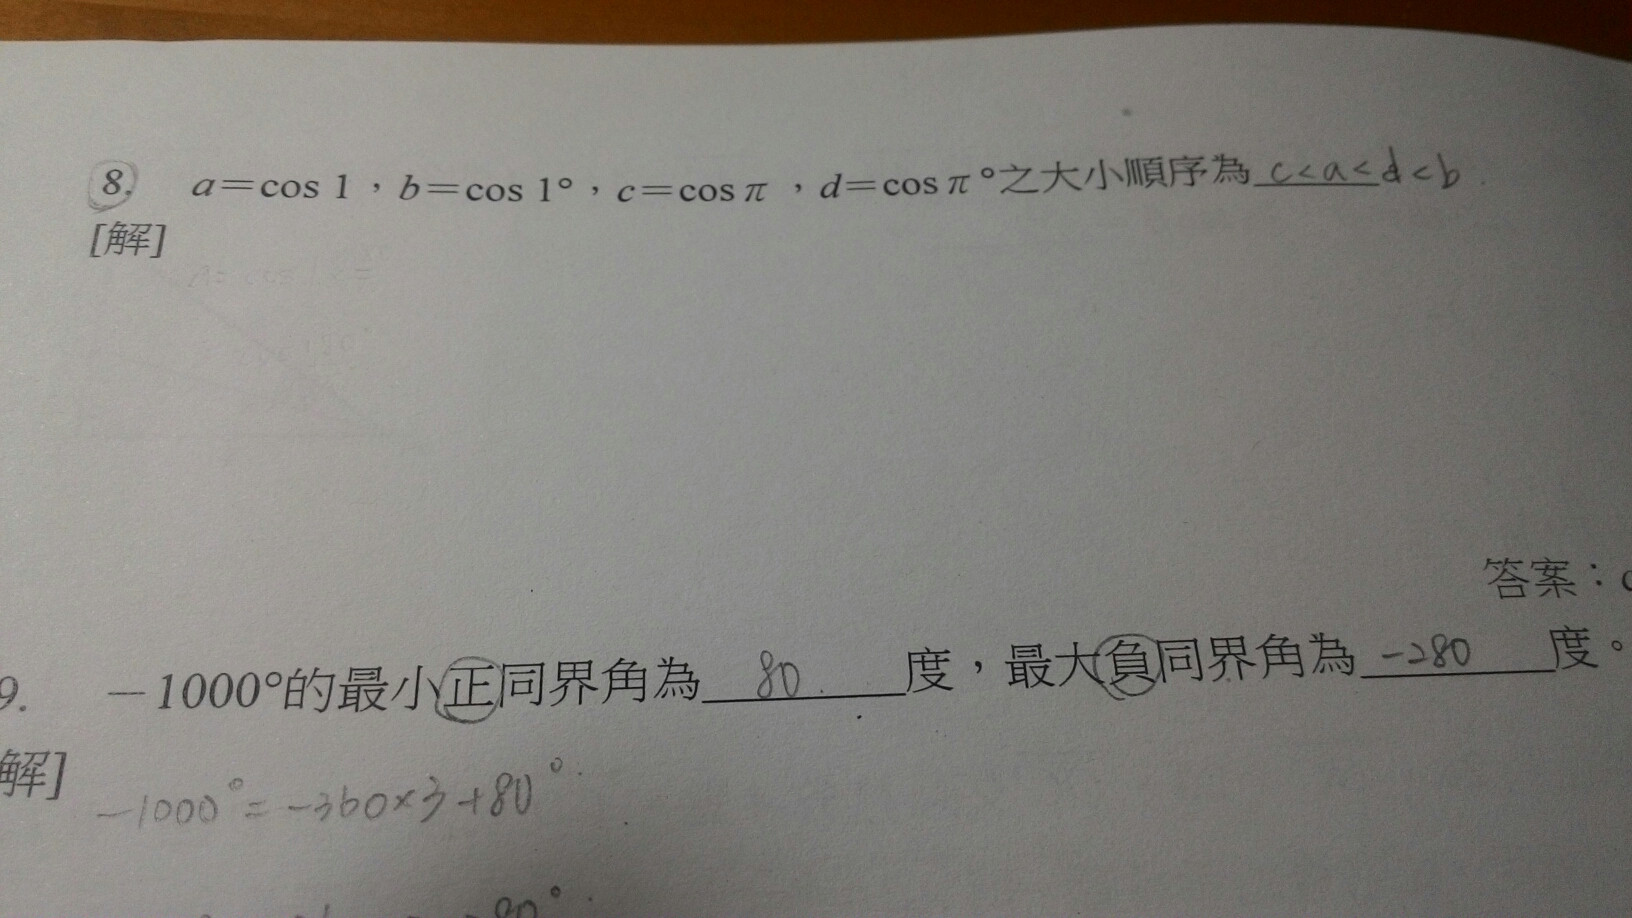 8. a=cos 1，b=cos 1°，c=cos π，d=cos π°之大小順序為 c<a<d<b.
[解]
答案：c
9. －1000°的最小正同界角為 80. 度，最大負同界角為 -280 度。
解]
-1000°= -360×3+80°.